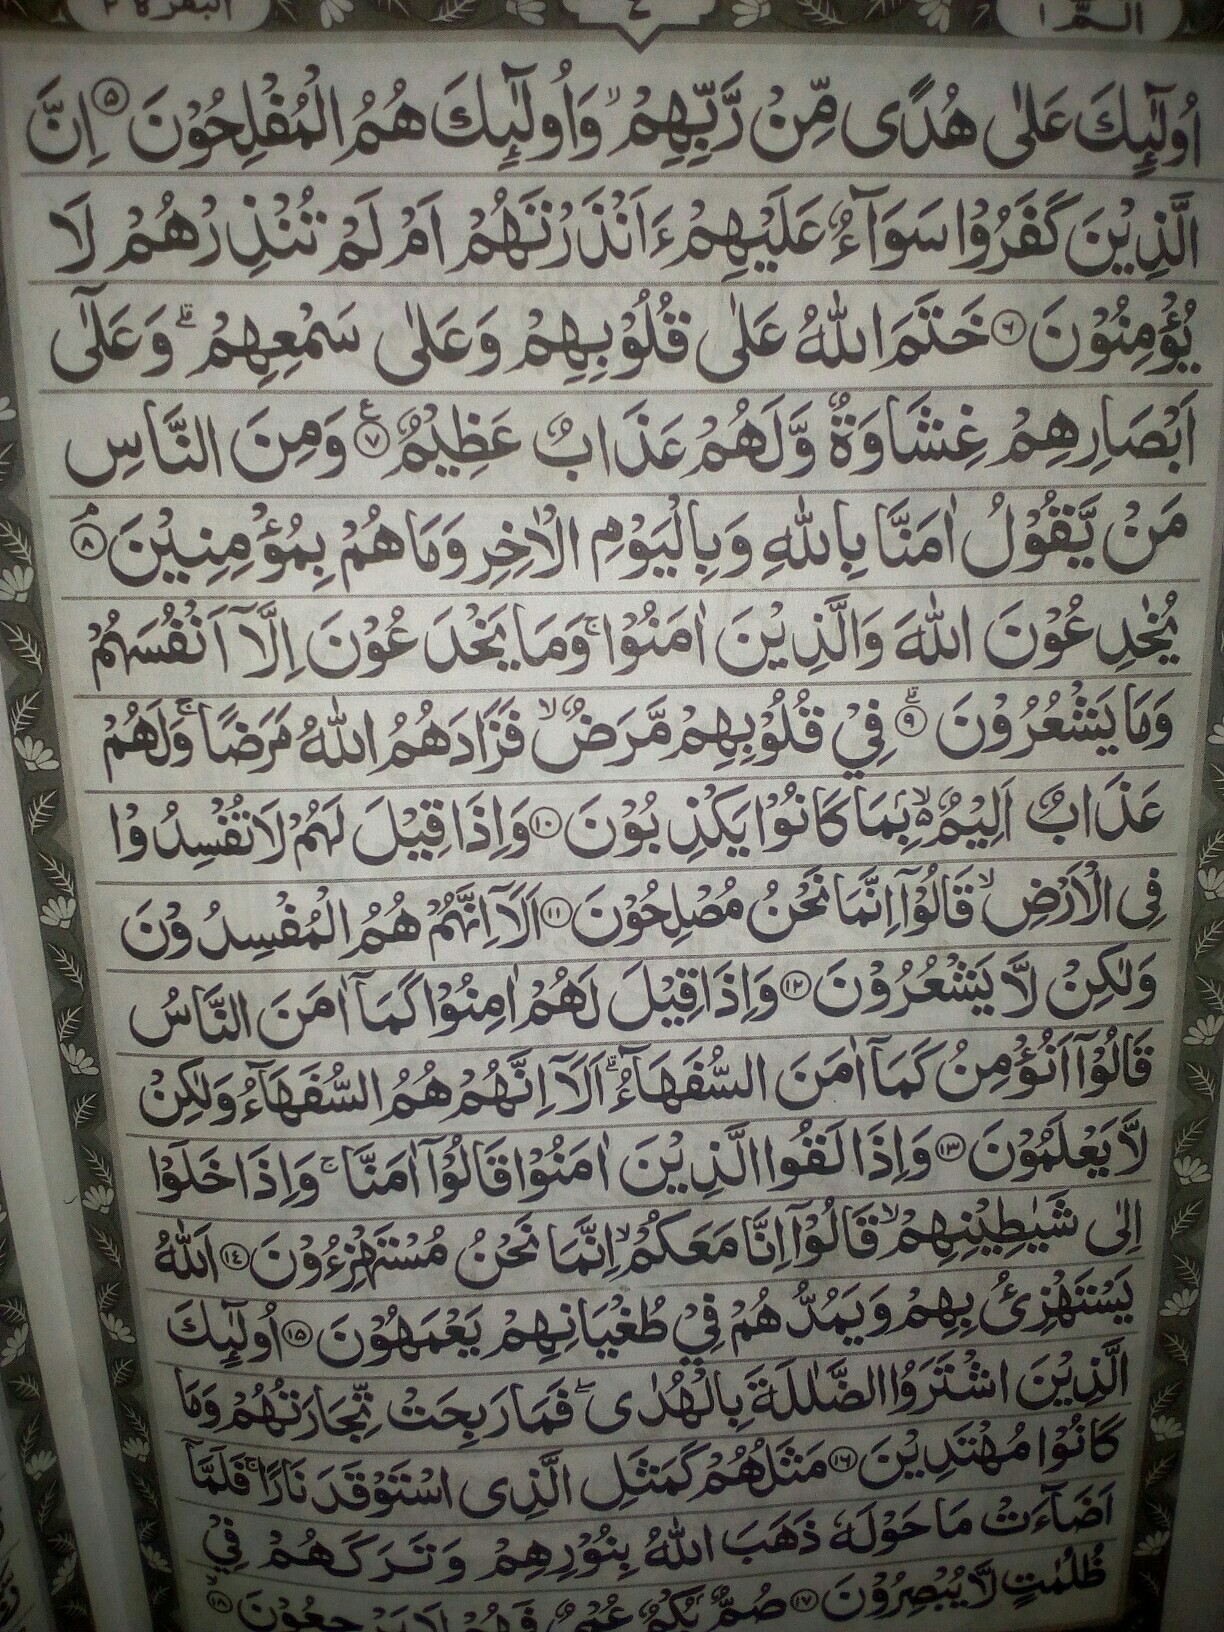 البقرة ٢ ٤ الٓمّٓ ١
اُولٰٓئِكَ عَلٰى هُدًى مِّنْ رَّبِّهِمْ ۙ وَاُولٰٓئِكَ هُمُ الْمُفْلِحُوْنَ ۵ اِنَّ
الَّذِيْنَ كَفَرُوْا سَوَآءٌ عَلَيْهِمْ ءَاَنْذَرْتَهُمْ اَمْ لَمْ تُنْذِرْهُمْ لَا
يُؤْمِنُوْنَ ۶ خَتَمَ اللّٰهُ عَلٰى قُلُوْبِهِمْ وَعَلٰى سَمْعِهِمْ ؕ وَعَلٰٓى
اَبْصَارِهِمْ غِشَاوَةٌ وَّلَهُمْ عَذَابٌ عَظِيْمٌ ۷ وَمِنَ النَّاسِ
مَنْ يَّقُوْلُ اٰمَنَّا بِاللّٰهِ وَبِالْيَوْمِ الْاٰخِرِ وَمَا هُمْ بِمُؤْمِنِيْنَ ۘ ۸
يُخٰدِعُوْنَ اللّٰهَ وَالَّذِيْنَ اٰمَنُوْا ۚ وَمَا يَخْدَعُوْنَ اِلَّآ اَنْفُسَهُمْ
وَمَا يَشْعُرُوْنَ ؕ ۹ فِيْ قُلُوْبِهِمْ مَّرَضٌ ۙ فَزَادَهُمُ اللّٰهُ مَرَضًا ۚ وَلَهُمْ
عَذَابٌ اَلِيْمٌ ۢ ۙ بِمَا كَانُوْا يَكْذِبُوْنَ ۱۰ وَاِذَا قِيْلَ لَهُمْ لَا تُفْسِدُوْا
فِى الْاَرْضِ ۙ قَالُوْٓا اِنَّمَا نَحْنُ مُصْلِحُوْنَ ۱۱ اَلَآ اِنَّهُمْ هُمُ الْمُفْسِدُوْنَ
وَلٰكِنْ لَّا يَشْعُرُوْنَ ۱۲ وَاِذَا قِيْلَ لَهُمْ اٰمِنُوْا كَمَآ اٰمَنَ النَّاسُ
قَالُوْٓا اَنُؤْمِنُ كَمَآ اٰمَنَ السُّفَهَآءُ ؕ اَلَآ اِنَّهُمْ هُمُ السُّفَهَآءُ وَلٰكِنْ
لَّا يَعْلَمُوْنَ ۱۳ وَاِذَا لَقُوا الَّذِيْنَ اٰمَنُوْا قَالُوْٓا اٰمَنَّا ۚ وَاِذَا خَلَوْا
اِلٰى شَيٰطِيْنِهِمْ ۙ قَالُوْٓا اِنَّا مَعَكُمْ ۙ اِنَّمَا نَحْنُ مُسْتَهْزِءُوْنَ ۱٤ اَللّٰهُ
يَسْتَهْزِئُ بِهِمْ وَيَمُدُّهُمْ فِيْ طُغْيَانِهِمْ يَعْمَهُوْنَ ۱۵ اُولٰٓئِكَ
الَّذِيْنَ اشْتَرَوُا الضَّلٰلَةَ بِالْهُدٰى ۖ فَمَا رَبِحَتْ تِّجَارَتُهُمْ وَمَا
كَانُوْا مُهْتَدِيْنَ ۱۶ مَثَلُهُمْ كَمَثَلِ الَّذِى اسْتَوْقَدَ نَارًا ۚ فَلَمَّآ
اَضَآءَتْ مَا حَوْلَهٗ ذَهَبَ اللّٰهُ بِنُوْرِهِمْ وَتَرَكَهُمْ فِيْ
ظُلُمٰتٍ لَّا يُبْصِرُوْنَ ۱۷ صُمٌّۢ بُكْمٌ عُمْيٌ فَهُمْ لَا يَرْجِعُوْنَ ۙ ۱۸